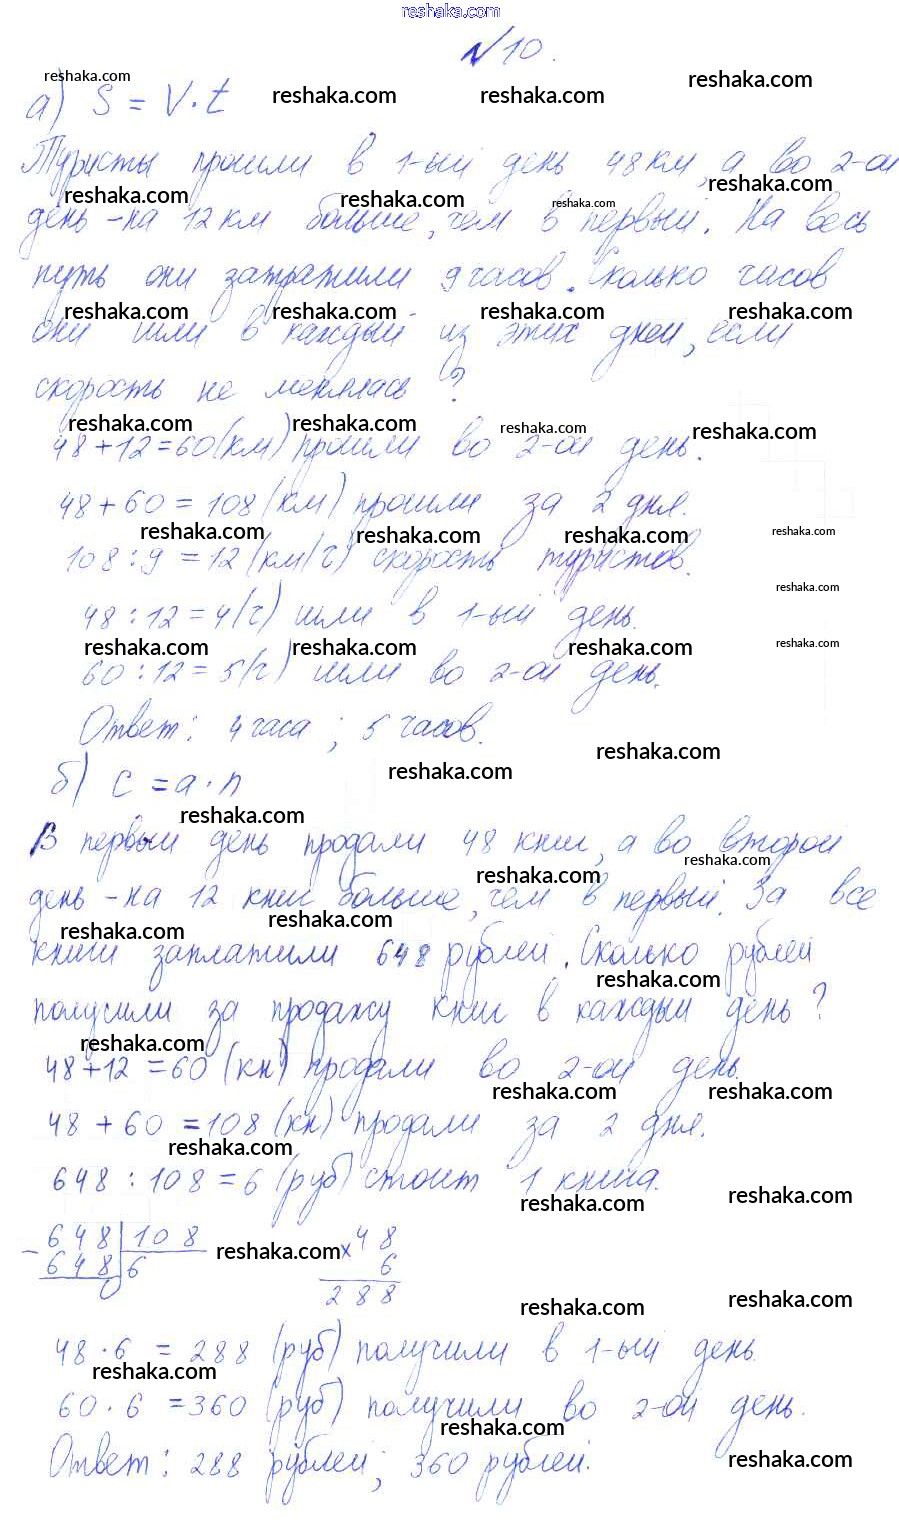 reshaka.com
№10.
а) S = V · t
Туристы прошли в 1-ый день 48 км, а во 2-ой
день - на 12 км больше, чем в первый. На весь
путь они затратили 9 часов. Сколько часов
они шли в каждый из этих дней, если
скорость не менялась?
48 + 12 = 60 (км) прошли во 2-ой день.
48 + 60 = 108 (км) прошли за 2 дня.
108 : 9 = 12 (км/ч) скорость туристов.
48 : 12 = 4 (ч) шли в 1-ый день.
60 : 12 = 5 (ч) шли во 2-ой день.
Ответ: 4 часа; 5 часов.
б) c = a · n
В первый день продали 48 книг, а во второй
день - на 12 книг больше, чем в первый. За все
книги заплатили 648 рублей. Сколько рублей
получили за продажу книг в каждый день?
48 + 12 = 60 (кн) продали во 2-ой день.
48 + 60 = 108 (кн) продали за 2 дня.
648 : 108 = 6 (руб) стоит 1 книга.
- 648 | 108 × 48
648 | 6 6
0 288
48 · 6 = 288 (руб) получили в 1-ый день.
60 · 6 = 360 (руб) получили во 2-ой день.
Ответ: 288 рублей; 360 рублей.